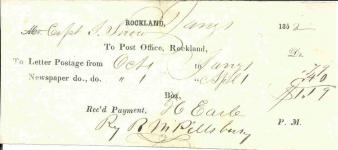 ROCKLAND, Jany 1 185
Mr. Capt I. Snow Dr.
To Post Office, Rockland,
To Letter Postage from Oct 1 to Jany 1 .79
Newspaper do., do. " 1 " Apl 1 .40
$1.19
Box,
Rec'd Payment, H Earle
P. M.
By R M Pillsbury